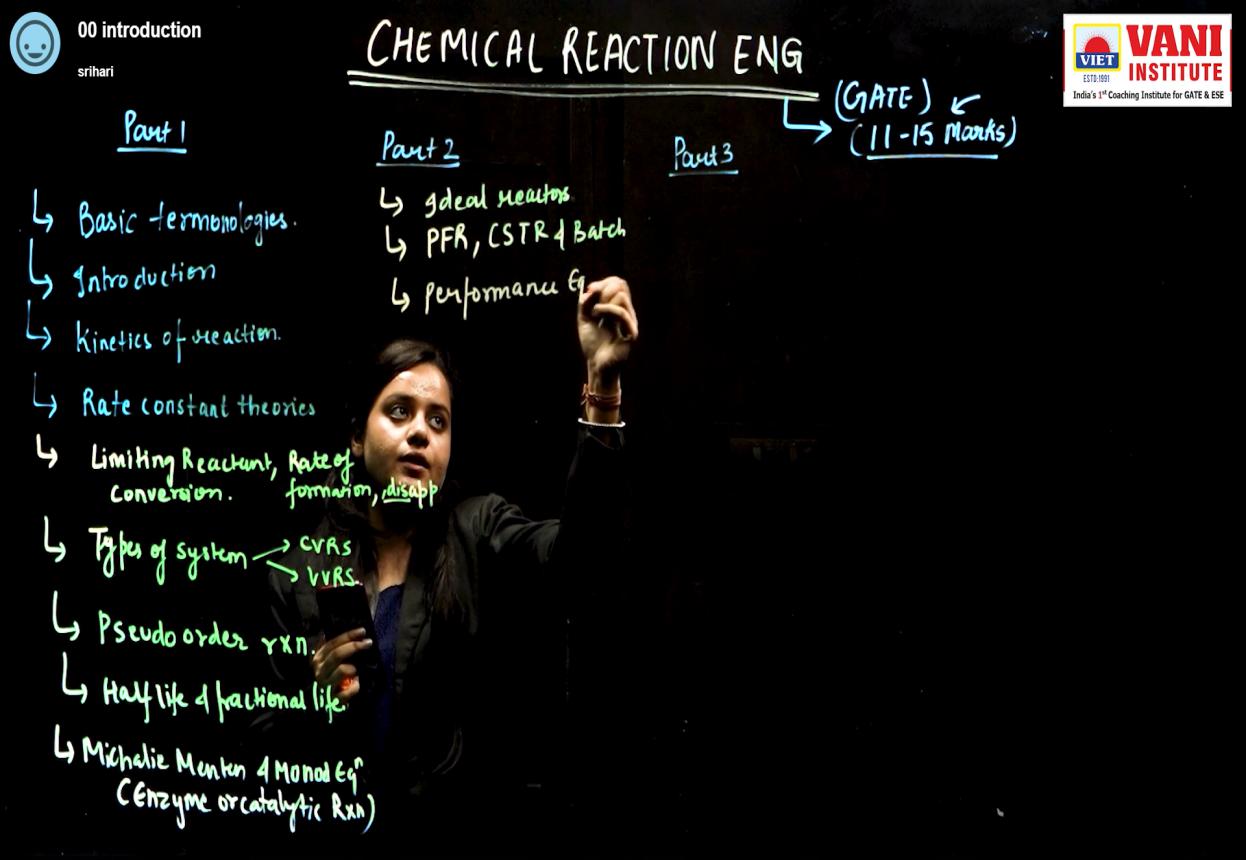 00 introduction
srihari
CHEMICAL REACTION ENG
VANI
INSTITUTE
VIET
ESTD:1991
India's 1st Coaching Institute for GATE & ESE
(GATE)
(11-15 Marks)
Part 1
↳ Basic termonologies.
↳ Introduction
↳ Kinetics of reaction.
↳ Rate constant theories
↳ Limiting Reactant, Rate of
conversion. formation, disapp
↳ Types of system
CVRS
VVRS.
↳ Pseudo order rxn.
↳ Half life & fractional life.
↳ Michalie Menten & Monod Eqn
(Enzyme or catalytic Rxn)
Part 2
↳ Ideal reactors
↳ PFR, CSTR & Batch
↳ Performance Eq
Part 3